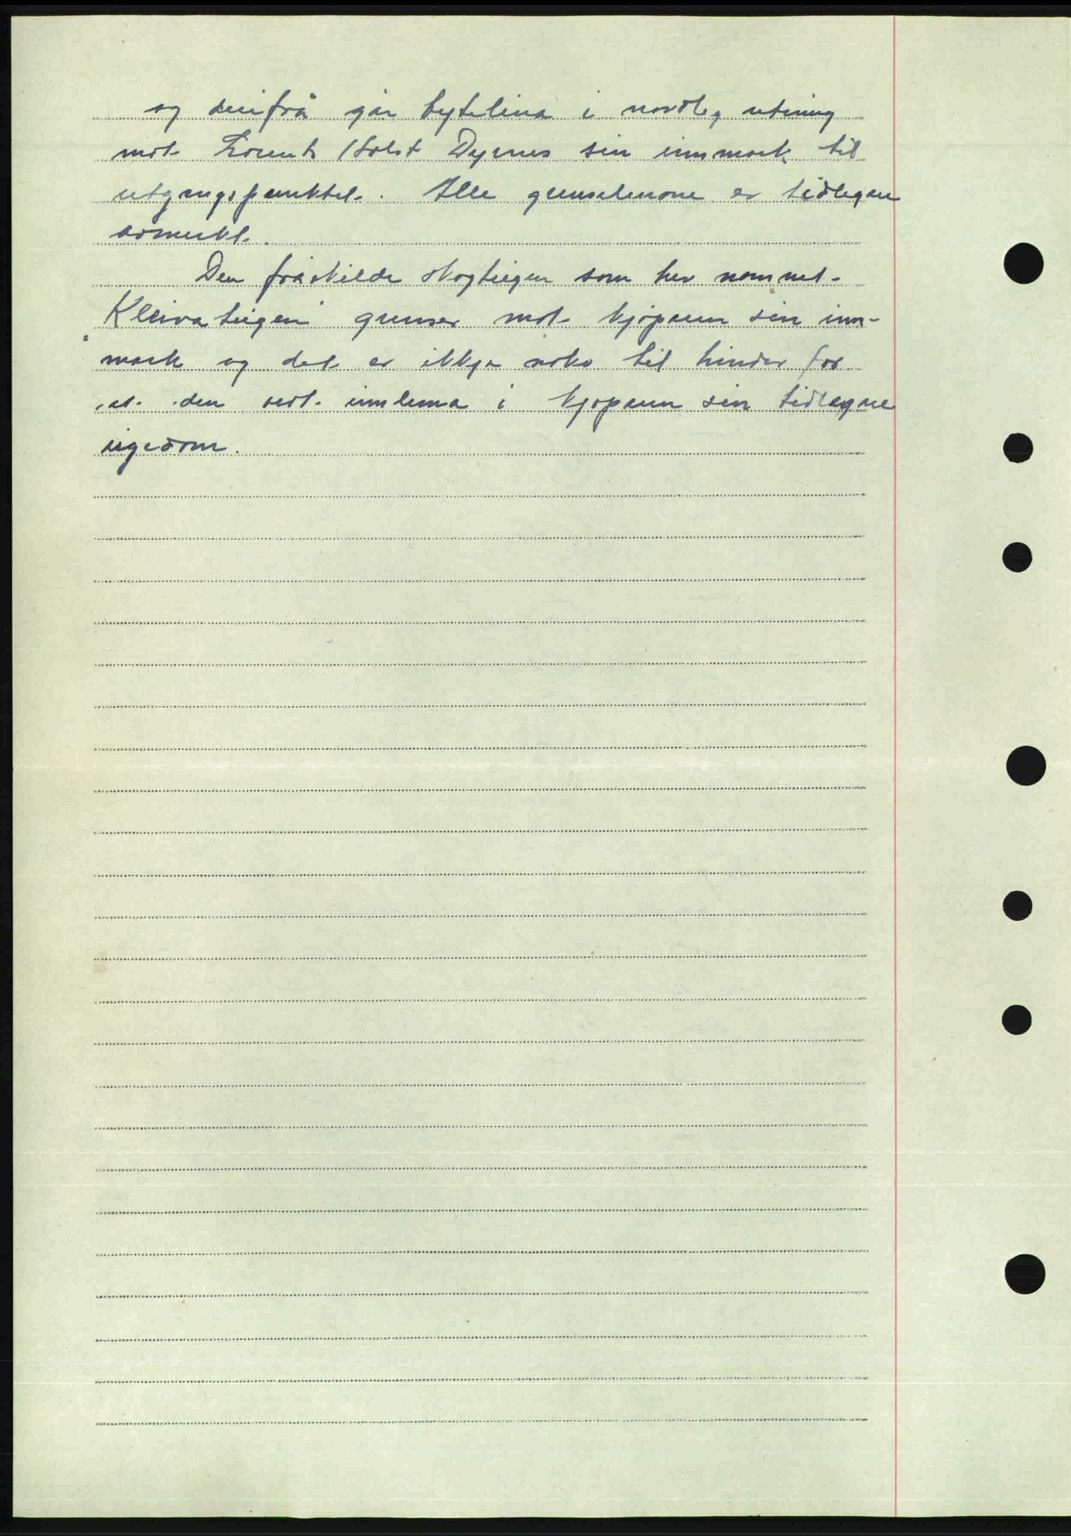 og derifrå går bytelina i nordleg retning
mot Lorents Holst Dyrnes sin innmark til
utgangspunktet. Alle grenselinone er tidlegare
avmerkt.
Den fråskilde skogteigen som her nemnet
"Kleivateigen" grenser mot kjøparen sin inn-
mark og det er ikkje noko til hinder for
at den vert innlema i kjøparen sin tidlegare
eigedom.